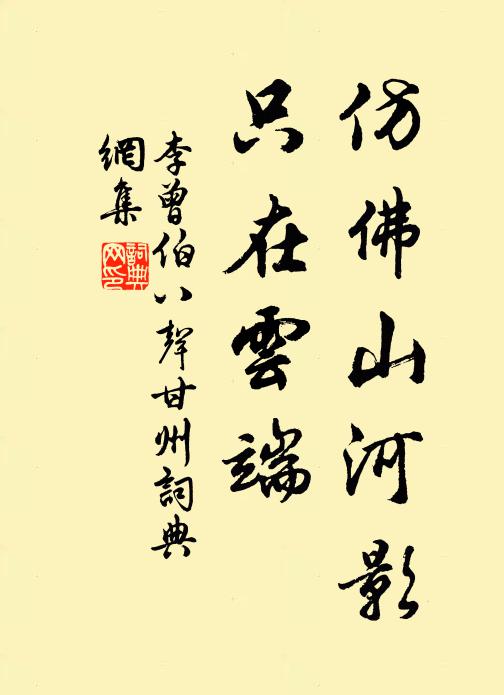 仿佛山河影
只在雲端
李曾伯八聲甘州詞典
網集
詞典網印